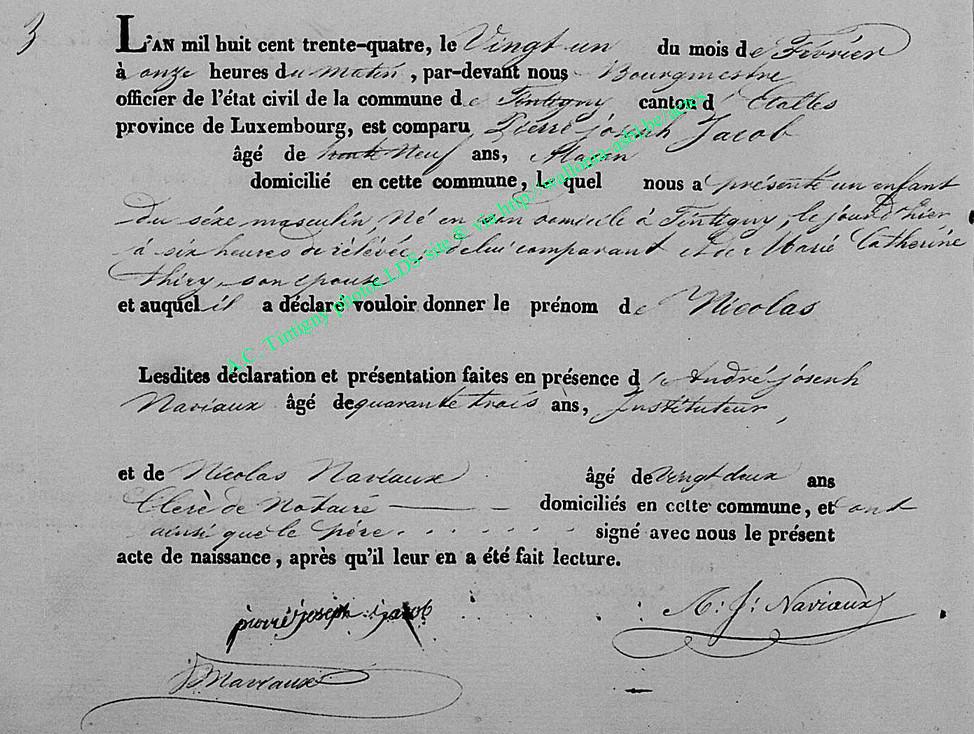 3
L'AN mil huit cent trente-quatre, le Vingt un du mois de Fevrier
à onze heures du matin, par-devant nous Bourgmestre
officier de l'état civil de la commune de Tintigny canton d'Etalle
province de Luxembourg, est comparu Pierre joseph Jacob
âgé de trente Neuf ans, Maçon
domicilié en cette commune, lequel nous a présenté un enfant
du séxe masculin, Né en son domicile à Tintigny, le jour d'hier
à six heures de rélévée, de lui comparant et de Marie Catherine
thiry, son epouse
et auquel il a déclaré vouloir donner le prénom de Nicolas
Lesdites déclaration et présentation faites en présence de André joseph
Naviaux âgé de quarante trois ans, Instituteur,
et de Nicolas Naviaux âgé de vingt deux ans
Clerc de Notaire domiciliés en cette commune, et ont
ainsi que le père signé avec nous le présent
acte de naissance, après qu'il leur en a été fait lecture.
pierre joseph jacob
A: J: Naviaux
Naviaux
A.C. Tintigny photos LDS site © via http://wallonia-asbl.be/actes